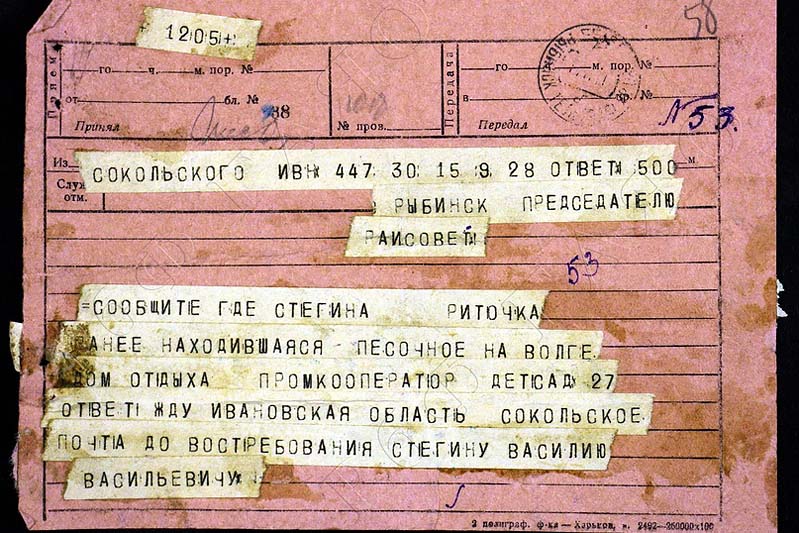 58
1205
Прием
го ч. м. пор. №
от бл. № 38
Принял № пров.
Передача
го м. пор. №
в
Передал
N 53.
Из м.
Служ. отм.
СОКОЛЬСКОГО ИВН 447 30 15 9 28 ОТВЕТ 500
РЫБИНСК ПРЕДСЕДАТЕЛЮ
РАИСОВЕТ
53
=СООБЩИТЕ ГДЕ СТЕГИНА РИТОЧКА
РАНЕЕ НАХОДИВШАЯСЯ ПЕСОЧНОЕ НА ВОЛГЕ
ДОМ ОТДЫХА ПРОМКООПЕРАТЮР ДЕТСАД 27
ОТВЕТ ЖДУ ИВАНОВСКАЯ ОБЛАСТЬ СОКОЛЬСКОЕ
ПОЧТА ДО ВОСТРЕБОВАНИЯ СТЕГИНУ ВАСИЛИЮ
ВАСИЛЬЕВИЧУ
2 полиграф. ф-ка — Харьков, з. 2492—250000х100